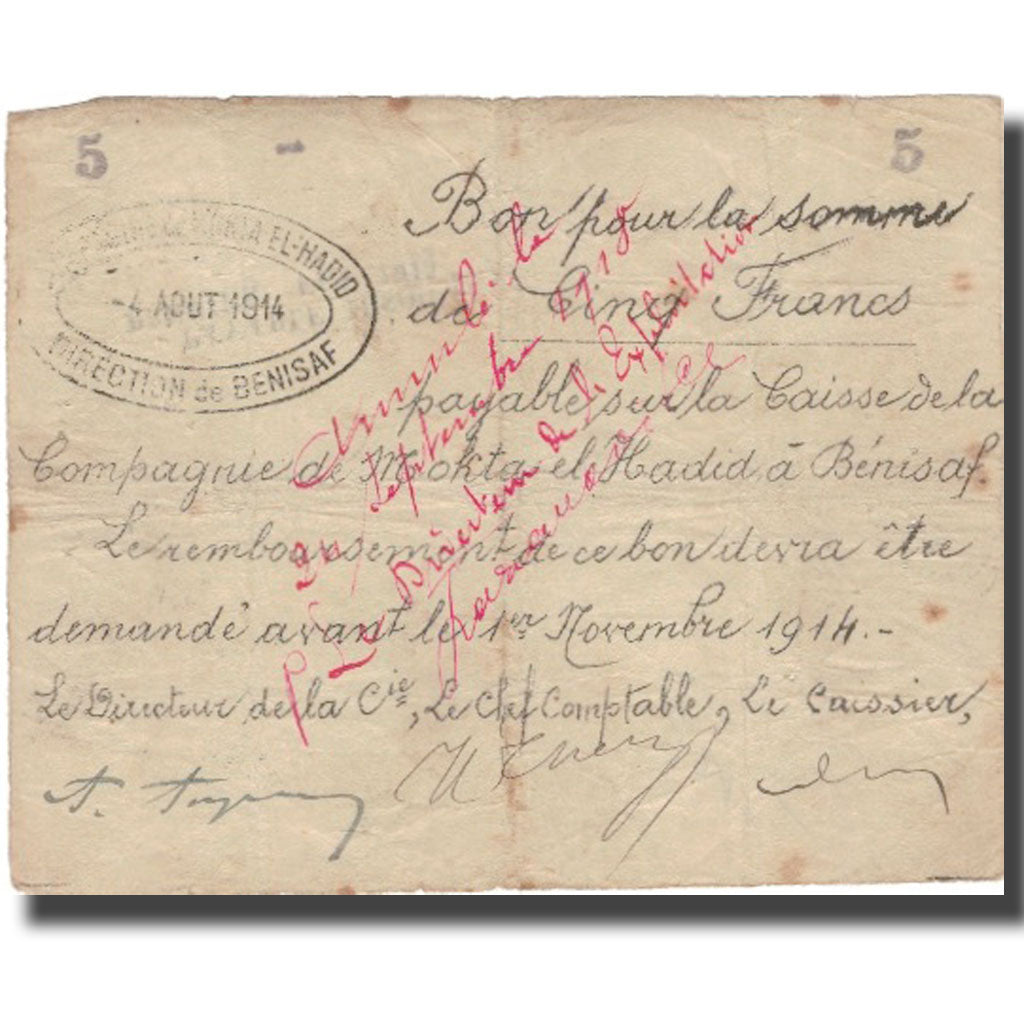 5 - 5
MOKTA EL-HADID
-4 AOUT 1914
DIRECTION de BENISAF
Bon pour la somme
de Cinq Francs
payable sur la Caisse de la
Compagnie de Mokta el Hadid à Bénisaf.
Le remboursement de ce bon devra être
demandé avant le 1er Novembre 1914.-
Le Directeur de la Cie, Le Chef Comptable, Le Caissier,
Annulé le
Septembre 1918
Le Directeur de l'Exploitation